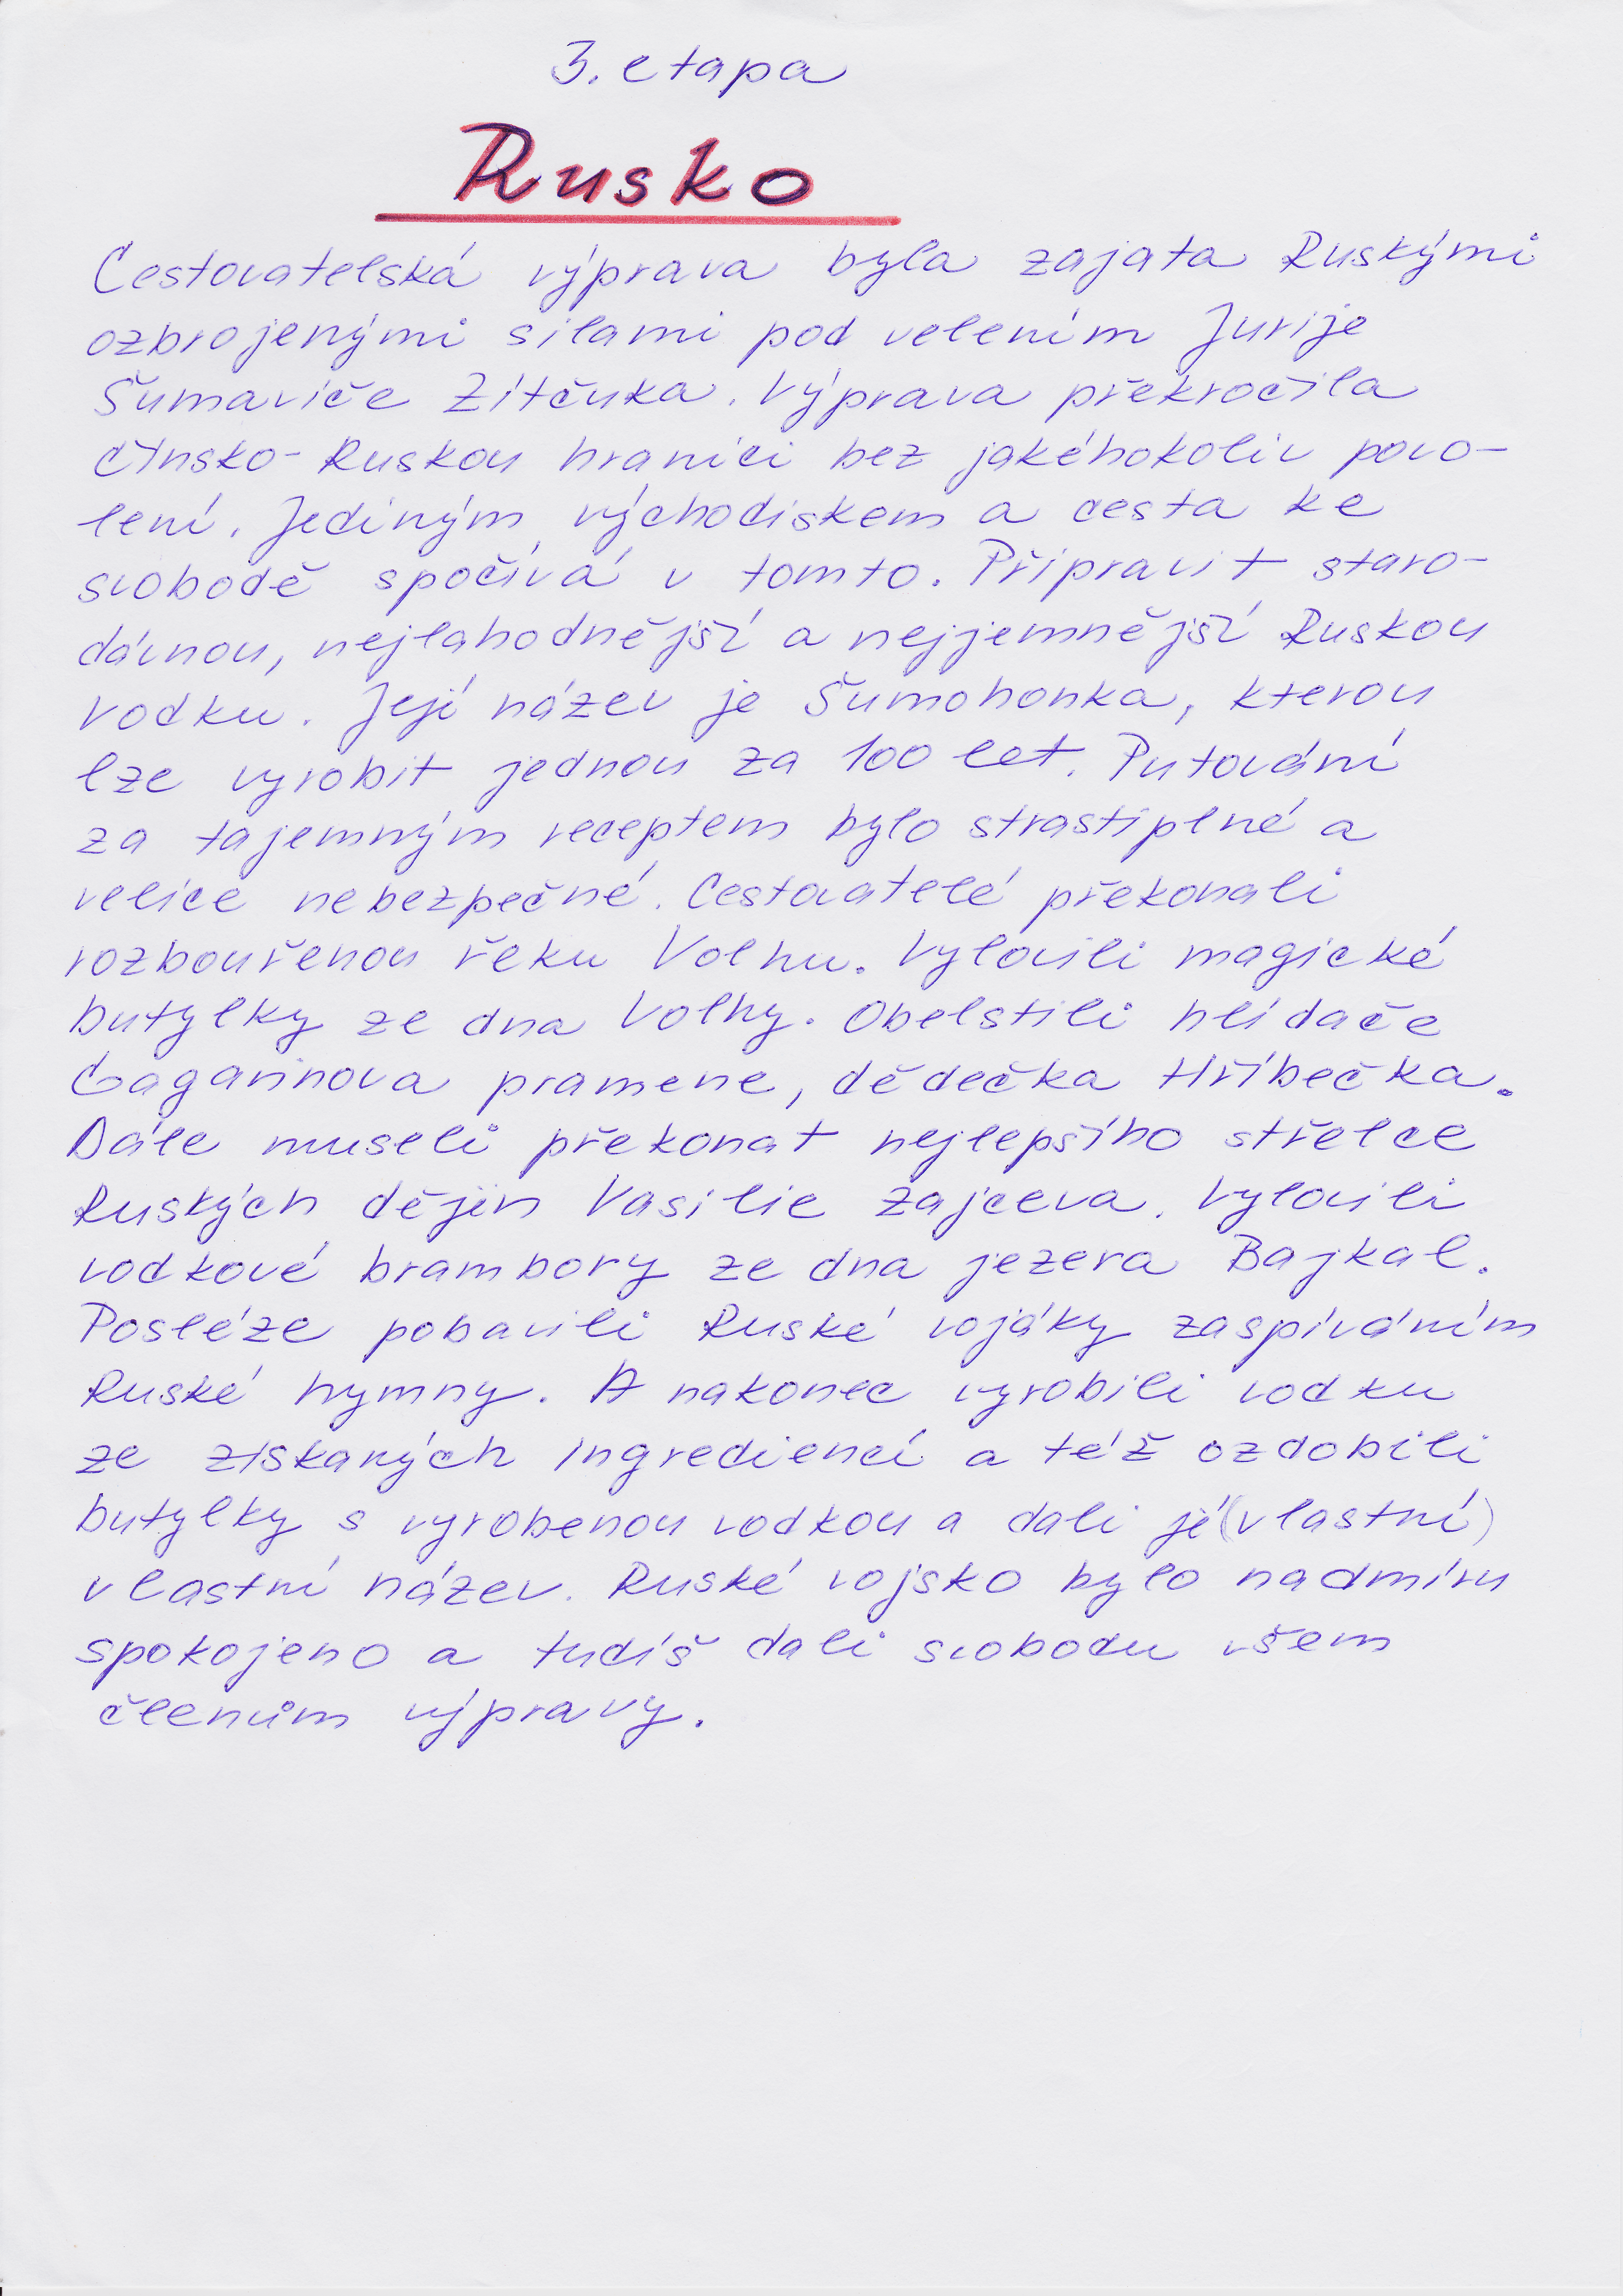 3. etapa
Rusko
Cestovatelská výprava byla zajata Ruskými
ozbrojenými silami pod velením Jurije
Šumaviče Zítčuka. Výprava překročila
čínsko-Ruskou hranici bez jakéhokoliv povo-
lení. Jediným východiskem a cesta ke
svobodě spočívá v tomto. Připravit staro-
dávnou, nejlahodnější a nejjemnější Ruskou
vodku. Její název je Šumohonka, kterou
lze vyrobit jednou za 100 let. Putování
za tajemným receptem bylo strastiplné a
velice nebezpečné. Cestovatelé překonali
rozbouřenou řeku Volhu. Vylovili magické
butylky ze dna Volhy. Obelstili hlídače
Gagarinova pramene, dědečka Hříbečka.
Dále museli překonat nejlepšího střelce
Ruských dějin Vasilie Zajceva. Vylovili
vodkové brambory ze dna jezera Bajkal.
Posléze pobavili Ruské vojáky zaspíváním
Ruské hymny. A nakonec vyrobili vodku
ze získaných ingrediencí a též ozdobili
butylky s vyrobenou vodkou a dali jé (vlastní)
vlastní název. Ruské vojsko bylo nadmíru
spokojeno a tudíš dali svobodu všem
členům výpravy.